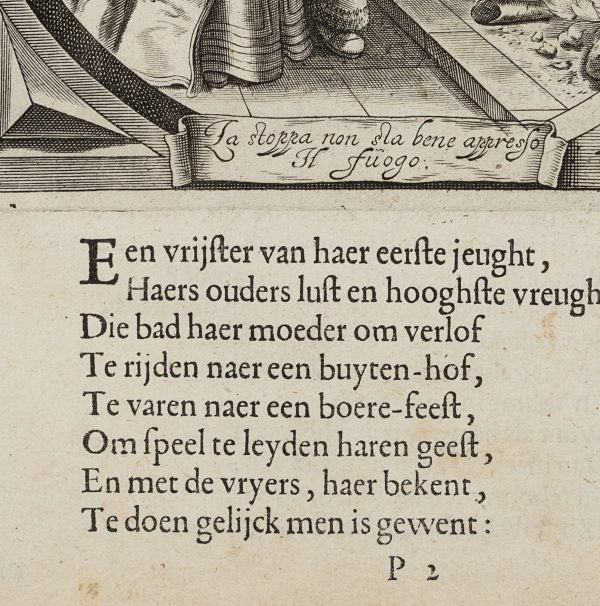 La stoppa non sta bene appresso
Il fuogo.
Een vrijſter van haer eerſte jeught,
Haers ouders luſt en hooghſte vreugh
Die bad haer moeder om verlof
Te rijden naer een buyten-hof,
Te varen naer een boere-feeſt,
Om ſpeel te leyden haren geeſt,
En met de vryers, haer bekent,
Te doen gelijck men is gewent:
P 2